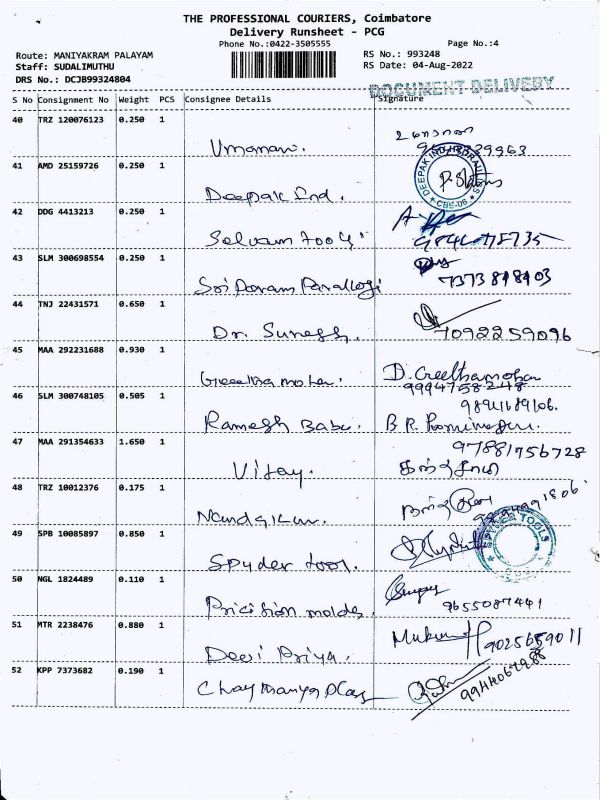 THE PROFESSIONAL COURIERS, Coimbatore
Delivery Runsheet - PCG
Phone No.:0422-3505555
Page No.:4
Route: MANIYAKRAM PALAYAM
RS No.: 993248
Staff: SUDALIMUTHU
RS Date: 04-Aug-2022
DRS No.: DCJB99324804
DOCUMENT DELIVERY
S No Consignment No Weight PCS Consignee Details Signature
40 TRZ 120076123 0.250 1
Umanan.
41 AMD 25159726 0.250 1
DEEPAK CBE-06
Deepak Ind.
42 DDG 4413213 0.250 1
Selvam tools
43 SLM 300698554 0.250 1
7373898403
Sri Param
44 TNJ 22431571 0.650 1
Dr. Suresh. 7092259096
45 MAA 292231688 0.930 1
D. Geethamohan
Geetha mohan. 9994758248
46 SLM 300748105 0.505 1
9894689106.
Ramesh Babu. B.R.
47 MAA 291354633 1.650 1
97881756728
Vijay.
48 TRZ 10012376 0.175 1
Nandakumar.
49 SPB 10085897 0.850 1
SPYDER TOOLS
Spyder tool.
50 NGL 1824489 0.110 1
9655087441
Pricision molds.
51 MTR 2238476 0.880 1
9025659011
Devi Priya.
52 KPP 7373682 0.190 1
9944067288